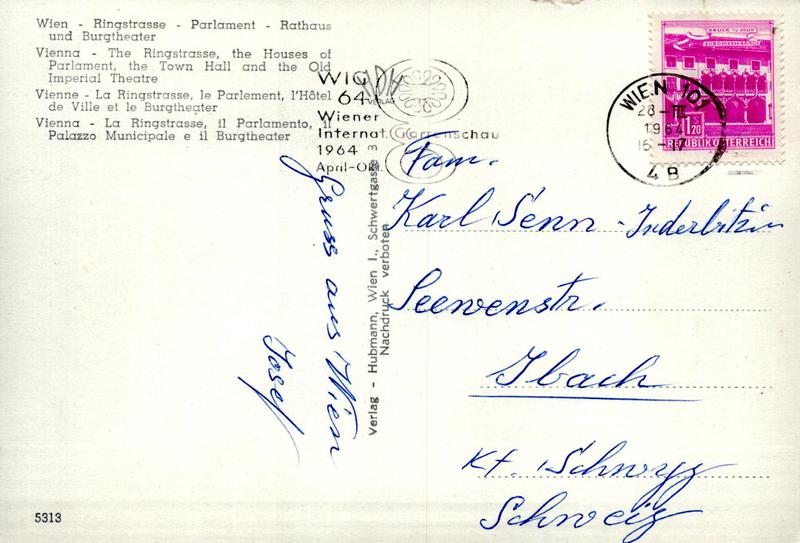 Wien - Ringstrasse - Parlament - Rathaus
und Burgtheater
Vienna - The Ringstrasse, the Houses of
Parlament, the Town Hall and the Old
Imperial Theatre
Vienne - La Ringstrasse, le Parlement, l'Hôtel
de Ville et le Burgtheater
Vienna - La Ringstrasse, il Parlamento, il
Palazzo Municipale e il Burgtheater
WIG
64
Wiener
Internat. Gartenschau
1964
April-Okt.
VERLAG
WIEN 101
28-III
1964
16-17
4B
1.20
REPUBLIK ÖSTERREICH
Fam.
Karl Senn - Inderbitzin
Seewenstr.
Ibach
Kt. Schwyz
Schweiz
Gruss aus Wien
Josef
Verlag - Hubmann, Wien I., Schwertgasse 3
Nachdruck verboten
5313